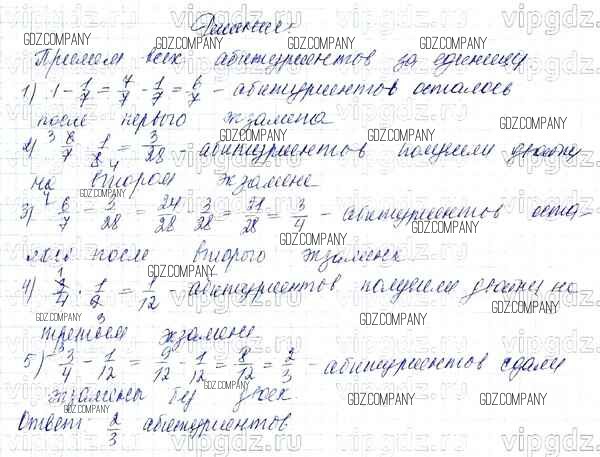 Решение:
Примем всех абитуриентов за единицу
1) 1 - 1/7 = 7/7 - 1/7 = 6/7 - абитуриентов осталось
после первого экзамена
2) 6/7 · 1/8 = 3/28 - абитуриентов получили двойку
на втором экзамене
3) 6/7 - 3/28 = 24/28 - 3/28 = 21/28 = 3/4 - абитуриентов оста-
лось после второго экзамена
4) 3/4 · 1/9 = 1/12 - абитуриентов получили двойку на
третьем экзамене
5) 3/4 - 1/12 = 9/12 - 1/12 = 8/12 = 2/3 - абитуриентов сдали
экзамены без двоек.
Ответ: 2/3 абитуриентов